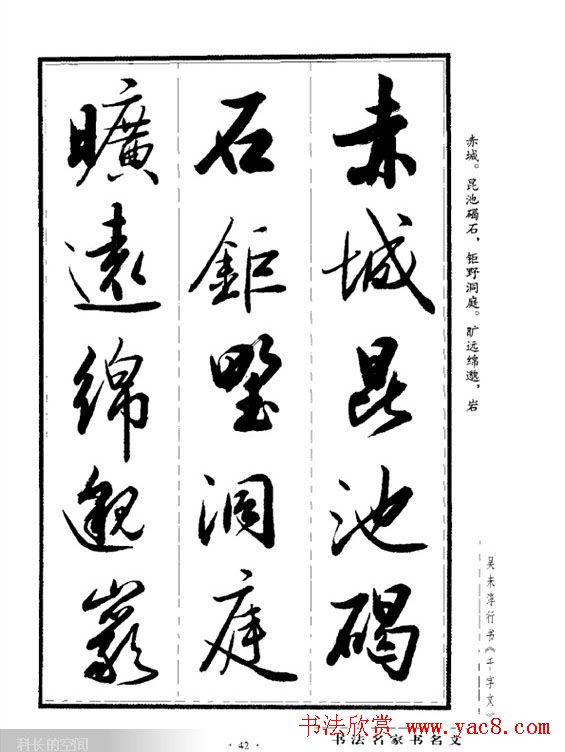 赤城昆池碣
石鉅墅洞庭
曠遠綿邈巖
赤城。昆池碣石，钜野洞庭。旷远绵邈，岩
吴未淳行书《千字文》
书法名家书名文
· 42 ·
书法欣赏 www.yac8.com
科长的空间